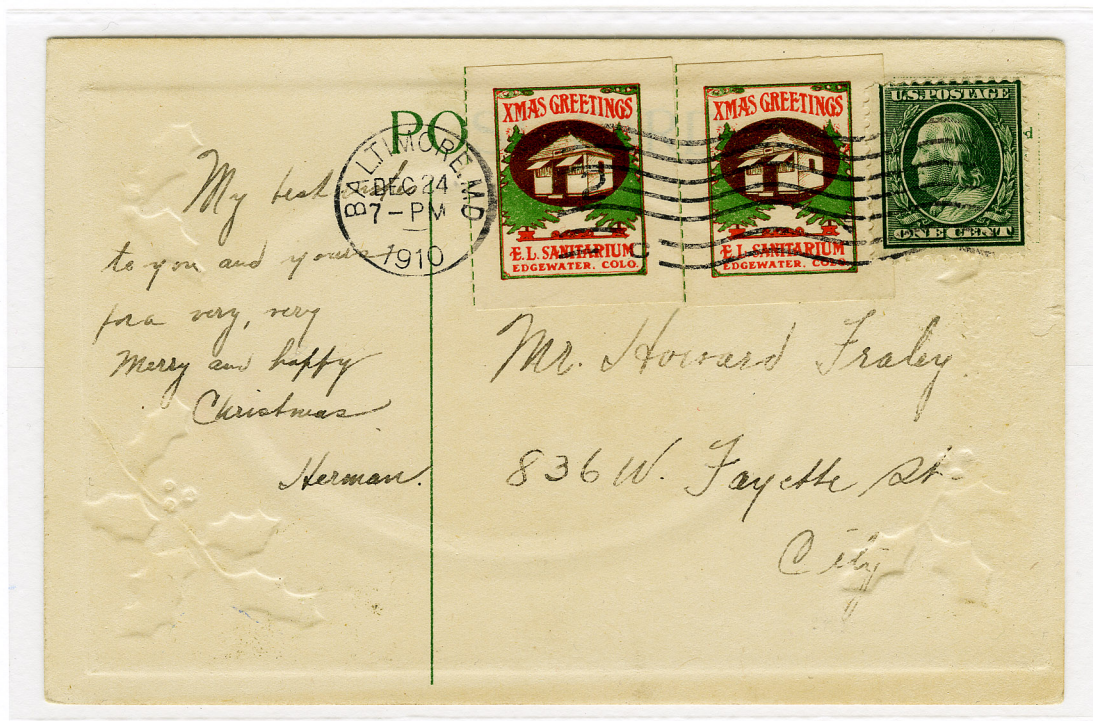 PO
BALTIMORE, MD.
DEC 24
7-PM
1910
XMAS GREETINGS
E.L. SANITARIUM
EDGEWATER, COLO.
XMAS GREETINGS
E.L. SANITARIUM
EDGEWATER, COLO.
U.S. POSTAGE
ONE CENT
d
My best wishes
to you and yours
for a very, very
Merry and happy
Christmas
Herman.
Mr. Howard Fraley.
836 W. Fayette St.
City